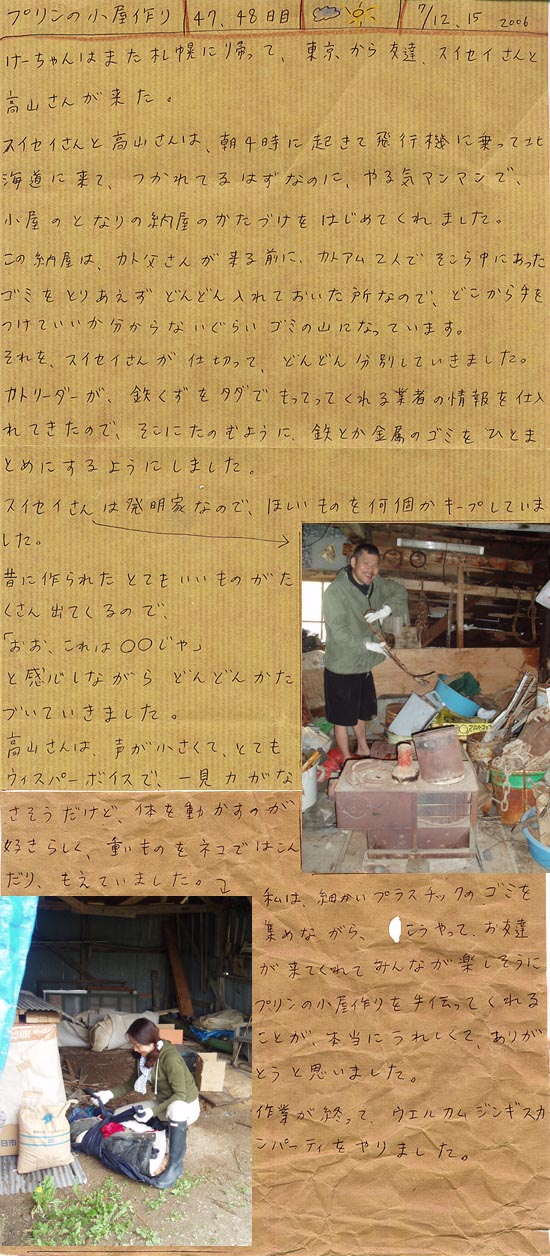 プリンの小屋作り 47、48日目 7/12、15 2006
けーちゃんはまた札幌に帰って、東京から友達、スイセイさんと
高山さんが来た。
スイセイさんと高山さんは、朝4時に起きて飛行機に乗って北
海道に来て、つかれてるはずなのに、やる気マンマンで、
小屋のとなりの納屋のかたづけをはじめてくれました。
この納屋は、カト父さんが来る前に、カトアム2人でそこら中にあった
ゴミをとりあえずどんどん入れておいた所なので、どこから手を
つけていいか分からないぐらいゴミの山になっています。
それを、スイセイさんが仕切って、どんどん分別していきました。
カトリーダーが、鉄くずをタダでもってってくれる業者の情報を仕入
れてきたので、そこにたのむように、鉄とか金属のゴミをひとま
とめにするようにしました。
スイセイさんは発明家なので、ほしいものを何個かキープしていま
した。
昔に作られたとてもいいものがた
くさん出てくるので、
「おお、これは〇〇じゃ」
と感心しながらどんどんかた
づいていきました。
高山さんは、声が小さくて、とても
ウィスパーボイスで、一見力がな
さそうだけど、体を動かすのが
好きらしく、重いものをネコではこん
だり、もえていました。
私は、細かいプラスチックのゴミを
集めながら、こうやって、お友達
が来てくれてみんなが楽しそうに
プリンの小屋作りを手伝ってくれる
ことが、本当にうれしくて、ありが
とうと思いました。
作業が終って、ウエルカムジンギスカ
ンパーティをやりました。